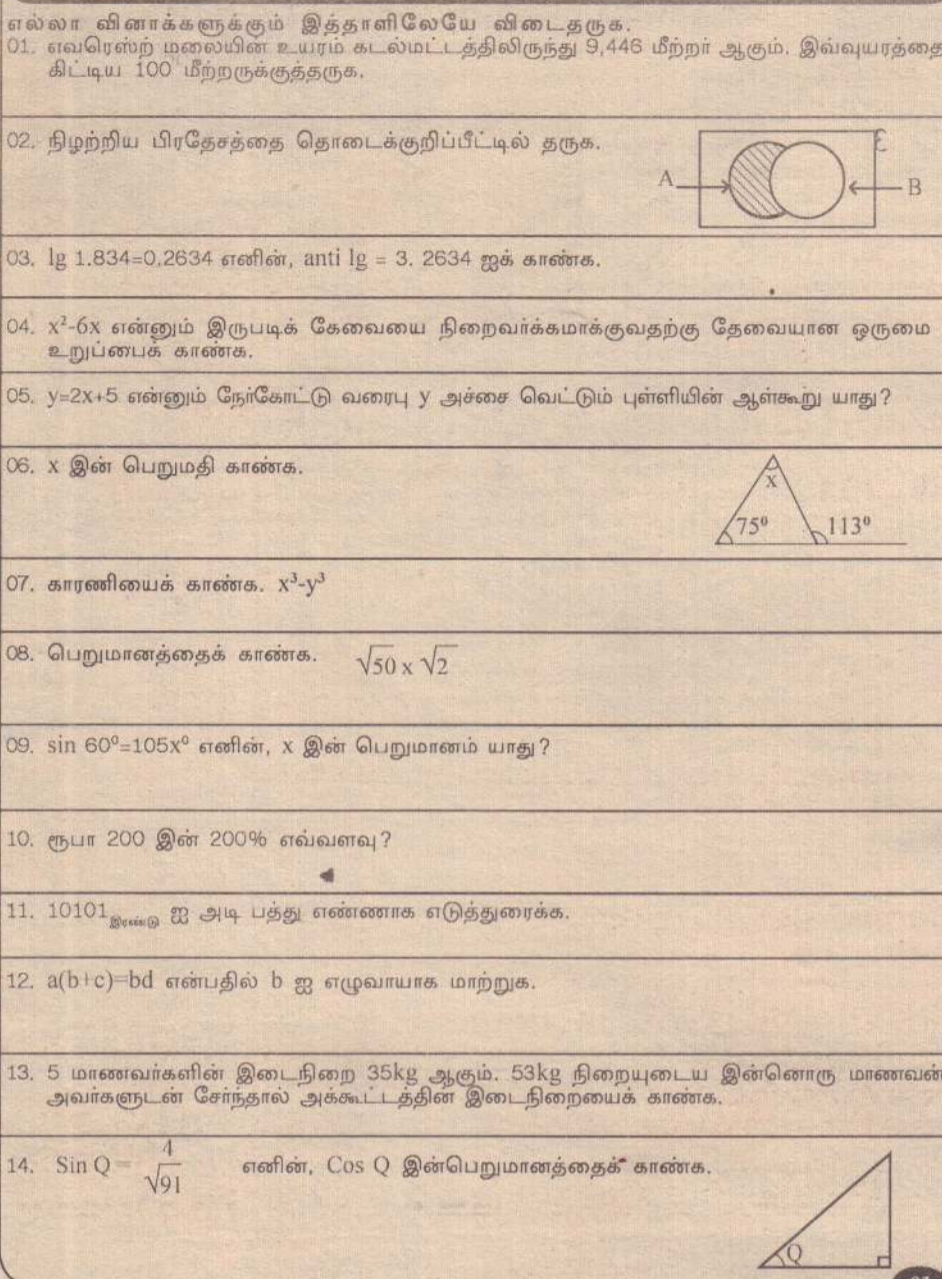 எல்லா வினாக்களுக்கும் இத்தாளிலேயே விடைதருக.
01. எவரெஸ்ற் மலையின் உயரம் கடல்மட்டத்திலிருந்து 9,446 மீற்றர் ஆகும். இவ்வுயரத்தை
கிட்டிய 100 மீற்றருக்குத்தருக.
02. நிழற்றிய பிரதேசத்தை தொடைக்குறிப்பீட்டில் தருக.
ξ
A
B
03. lg 1.834=0,2634 எனின், anti lg = 3. 2634 ஐக் காண்க.
04. x²-6x என்னும் இருபடிக் கேவையை நிறைவர்க்கமாக்குவதற்கு தேவையான ஒருமை
உறுப்பைக் காண்க.
05. y=2x+5 என்னும் நேர்கோட்டு வரைபு y அச்சை வெட்டும் புள்ளியின் ஆள்கூறு யாது?
06. x இன் பெறுமதி காண்க.
x
75⁰ 113⁰
07. காரணியைக் காண்க. x³-y³
08. பெறுமானத்தைக் காண்க. √50 x √2
09. sin 60⁰=105x⁰ எனின், x இன் பெறுமானம் யாது?
10. ரூபா 200 இன் 200% எவ்வளவு?
11. 10101இரண்டு ஐ அடி பத்து எண்ணாக எடுத்துரைக்க.
12. a(b+c)=bd என்பதில் b ஐ எழுவாயாக மாற்றுக.
13. 5 மாணவர்களின் இடைநிறை 35kg ஆகும். 53kg நிறையுடைய இன்னொரு மாணவன்
அவர்களுடன் சேர்ந்தால் அக்கூட்டத்தின் இடைநிறையைக் காண்க.
14. Sin Q = 4/√91 எனின், Cos Q இன்பெறுமானத்தைக் காண்க.
Q